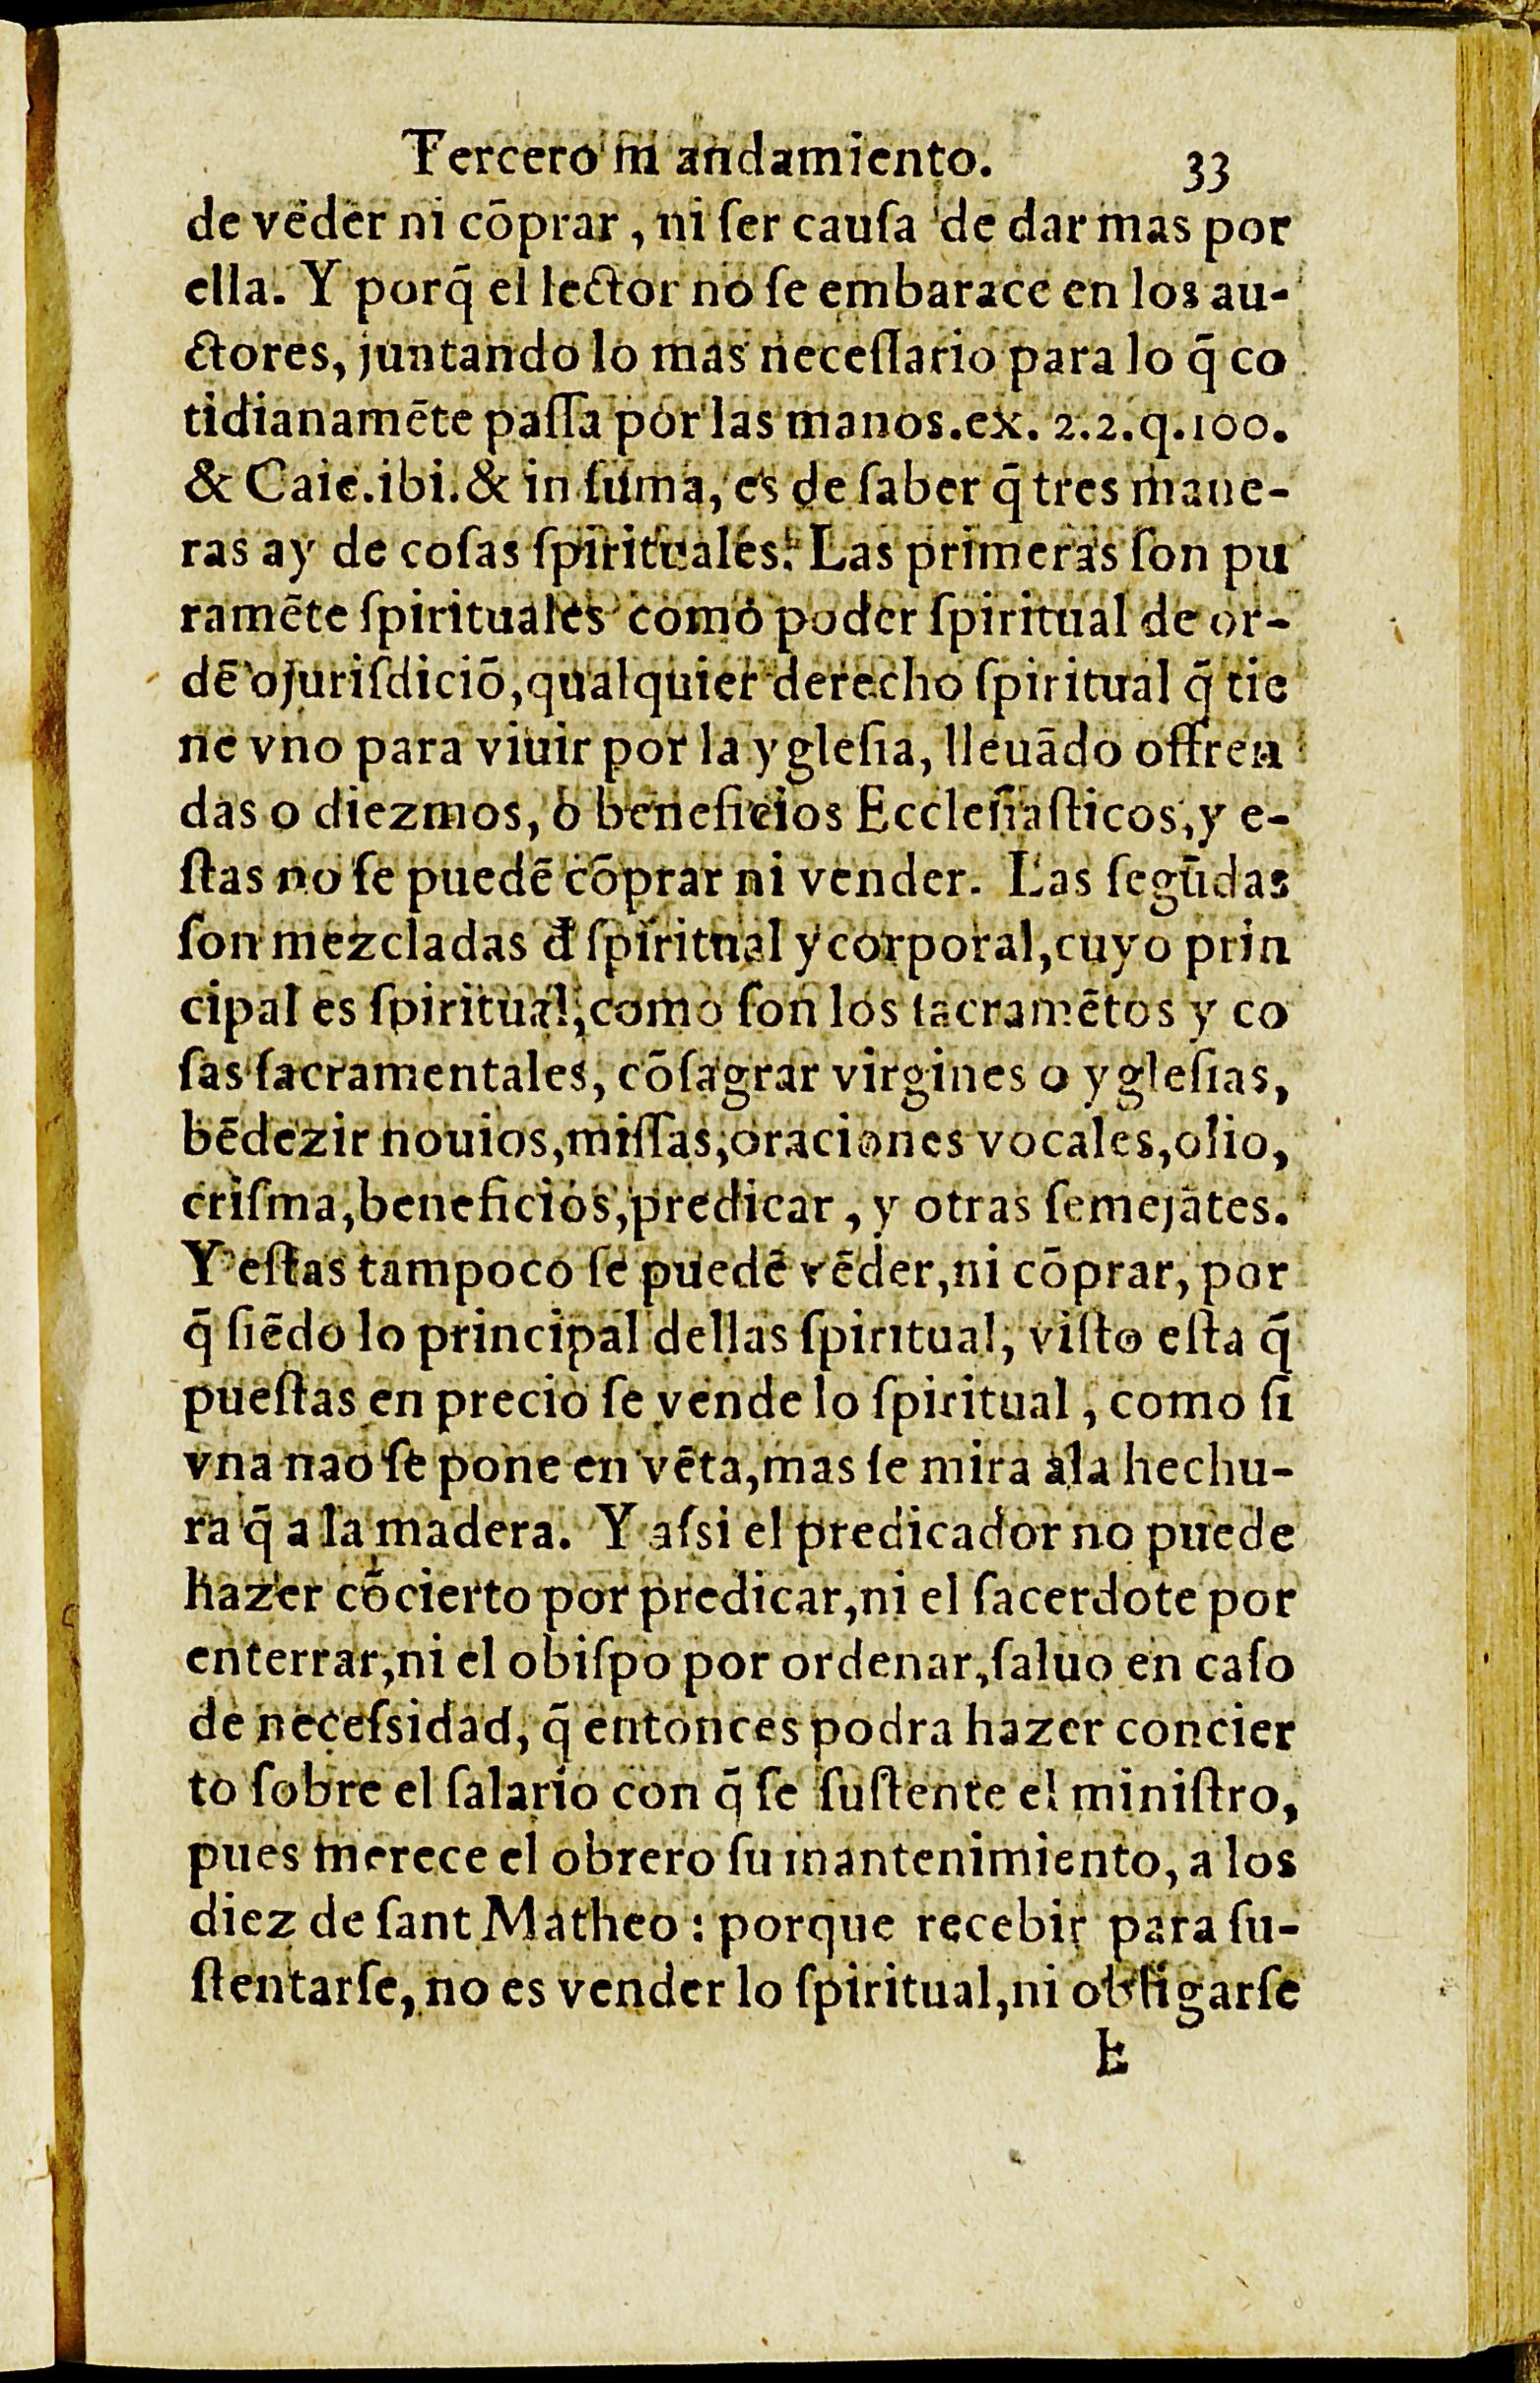 Tercero m andamiento. 33
de vēder ni cōprar, ni ſer cauſa de dar mas por
ella. Y porq̄ el lector no ſe embarace en los au-
ctores, juntando lo mas neceſſario para lo q̄ co
tidianamēte paſſa por las manos.ex. 2.2.q.100.
& Caie.ibi.& in ſūma, es de ſaber q̄ tres mane-
ras ay de coſas ſpirituales. Las primeras ſon pu
ramēte ſpirituales como poder ſpiritual de or-
dē o juriſdiciō, qualquier derecho ſpiritual q̄ tie
ne vno para viuir por la ygleſia, lleuādo offren
das o diezmos, o beneficios Eccleſiaſticos, y e-
ſtas no ſe puedē cōprar ni vender. Las ſegūdas
ſon mezcladas đ ſpiritual y corporal, cuyo prin
cipal es ſpiritual, como ſon los ſacramētos y co
ſas ſacramentales, cōſagrar virgines o ygleſias,
bēdezir nouios, miſſas, oraciones vocales, olio,
criſma, beneficios, predicar, y otras ſemejātes.
Y eſtas tampoco ſe puedē vēder, ni cōprar, por
q̄ ſiēdo lo principal dellas ſpiritual, viſto eſta q̄
pueſtas en precio ſe vende lo ſpiritual, como ſi
vna nao ſe pone en vēta, mas ſe mira ala hechu-
ra q̄ a la madera. Y aſsi el predicador no puede
hazer cōcierto por predicar, ni el ſacerdote por
enterrar, ni el obiſpo por ordenar, ſaluo en caſo
de neceſsidad, q̄ entonces podra hazer concier
to ſobre el ſalario con q̄ ſe ſuſtente el miniſtro,
pues merece el obrero ſu mantenimiento, a los
diez de ſant Matheo: porque recebir para ſu-
ſtentarſe, no es vender lo ſpiritual, ni obligarſe
E